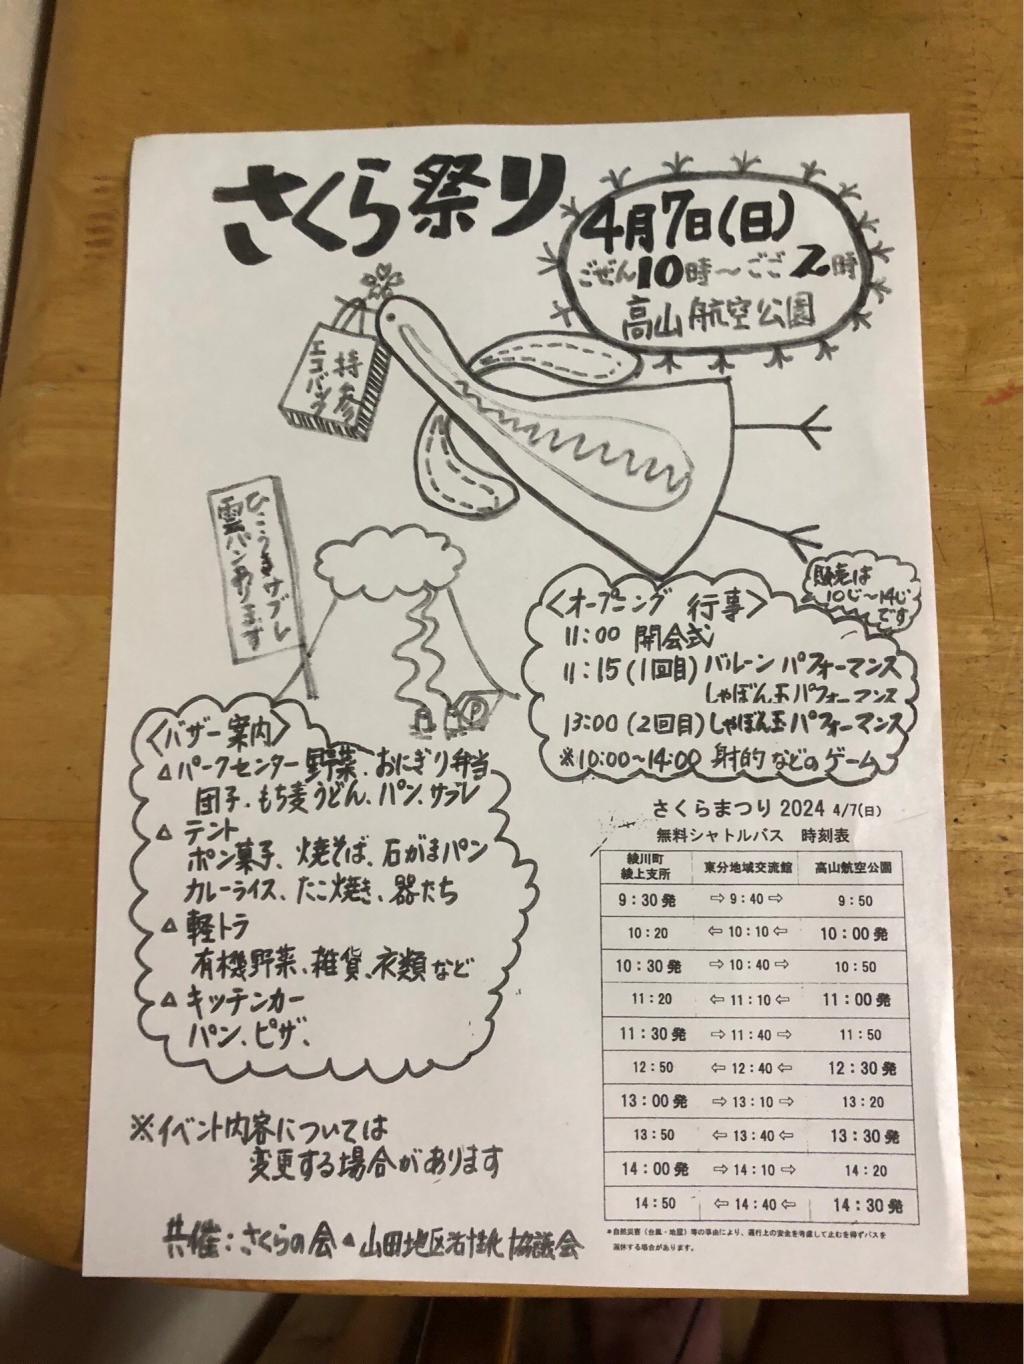 さくら祭り
4月7日(日)
ごぜん10時～ごご2時
高山航空公園
持参
エコバッグ
ひこうきサブレ
雲パンあります
販売は
10じ～14じ
です
〈オープニング 行事〉
11:00 開会式
11:15(1回目)バルーンパフォーマンス
しゃぼん玉パフォーマンス
13:00(2回目)しゃぼん玉パフォーマンス
※10:00~14:00 射的などのゲーム
P
〈バザー案内〉
△パークセンター 野菜、おにぎり弁当
団子、もち麦うどん、パン、サブレ
△テント
ポン菓子、焼そば、石がまパン
カレーライス、たこ焼き、器たち
△軽トラ
有機野菜、雑貨、衣類など
△キッチンカー
パン、ピザ、
※イベント内容については
変更する場合があります
共催：さくらの会▲山田地区活性化協議会
さくらまつり 2024 4/7(日)
無料シャトルバス 時刻表
綾川町 綾上支所 東分地域交流館 高山航空公園
9：30発 ⇨ 9：40 ⇨ 9：50
10：20 ⇦ 10：10 ⇦ 10：00発
10：30発 ⇨ 10：40 ⇨ 10：50
11：20 ⇦ 11：10 ⇦ 11：00発
11：30発 ⇨ 11：40 ⇨ 11：50
12：50 ⇦ 12：40 ⇦ 12：30発
13：00発 ⇨ 13：10 ⇨ 13：20
13：50 ⇦ 13：40 ⇦ 13：30発
14：00発 ⇨ 14：10 ⇨ 14：20
14：50 ⇦ 14：40 ⇦ 14：30発
＊自然災害（台風・地震）等の事由により、運行上の安全を考慮して止むを得ずバスを
運休する場合があります。